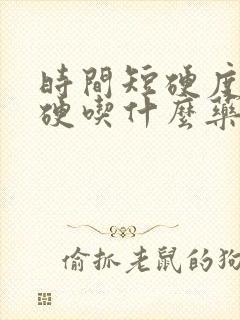 時間短硬度
硬喫什麼藥
偷抓老鼠的狗